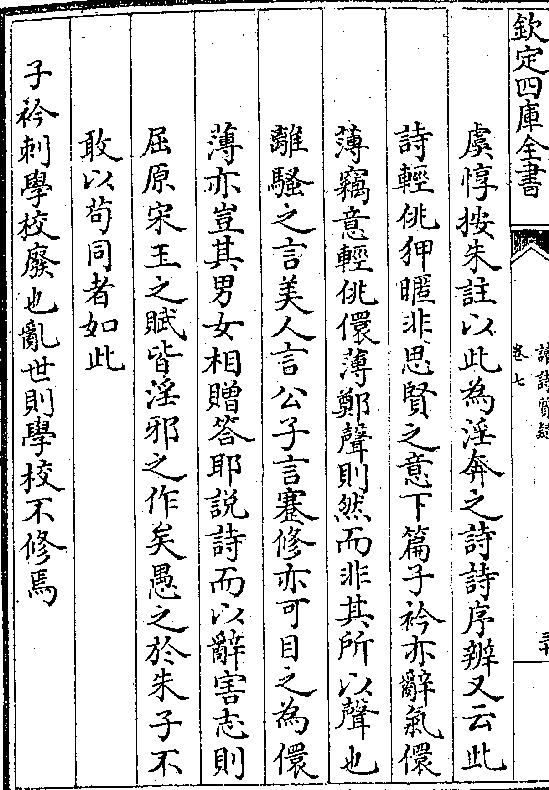 欽定四庫全書
讀詩質疑
卷七
三十
虞惇按朱註以此為淫奔之詩詩序辨又云此
詩輕佻狎暱非思賢之意下篇子衿亦辭氣儇
薄竊意輕佻儇薄鄭聲則然而非其所以聲也
離騷之言美人言公子言蹇修亦可目之為儇
薄亦豈其男女相贈答耶説詩而以辭害志則
屈原宋玉之賦皆淫邪之作矣愚之於朱子不
敢以苟同者如此
子衿刺學校廢也亂世則學校不修焉